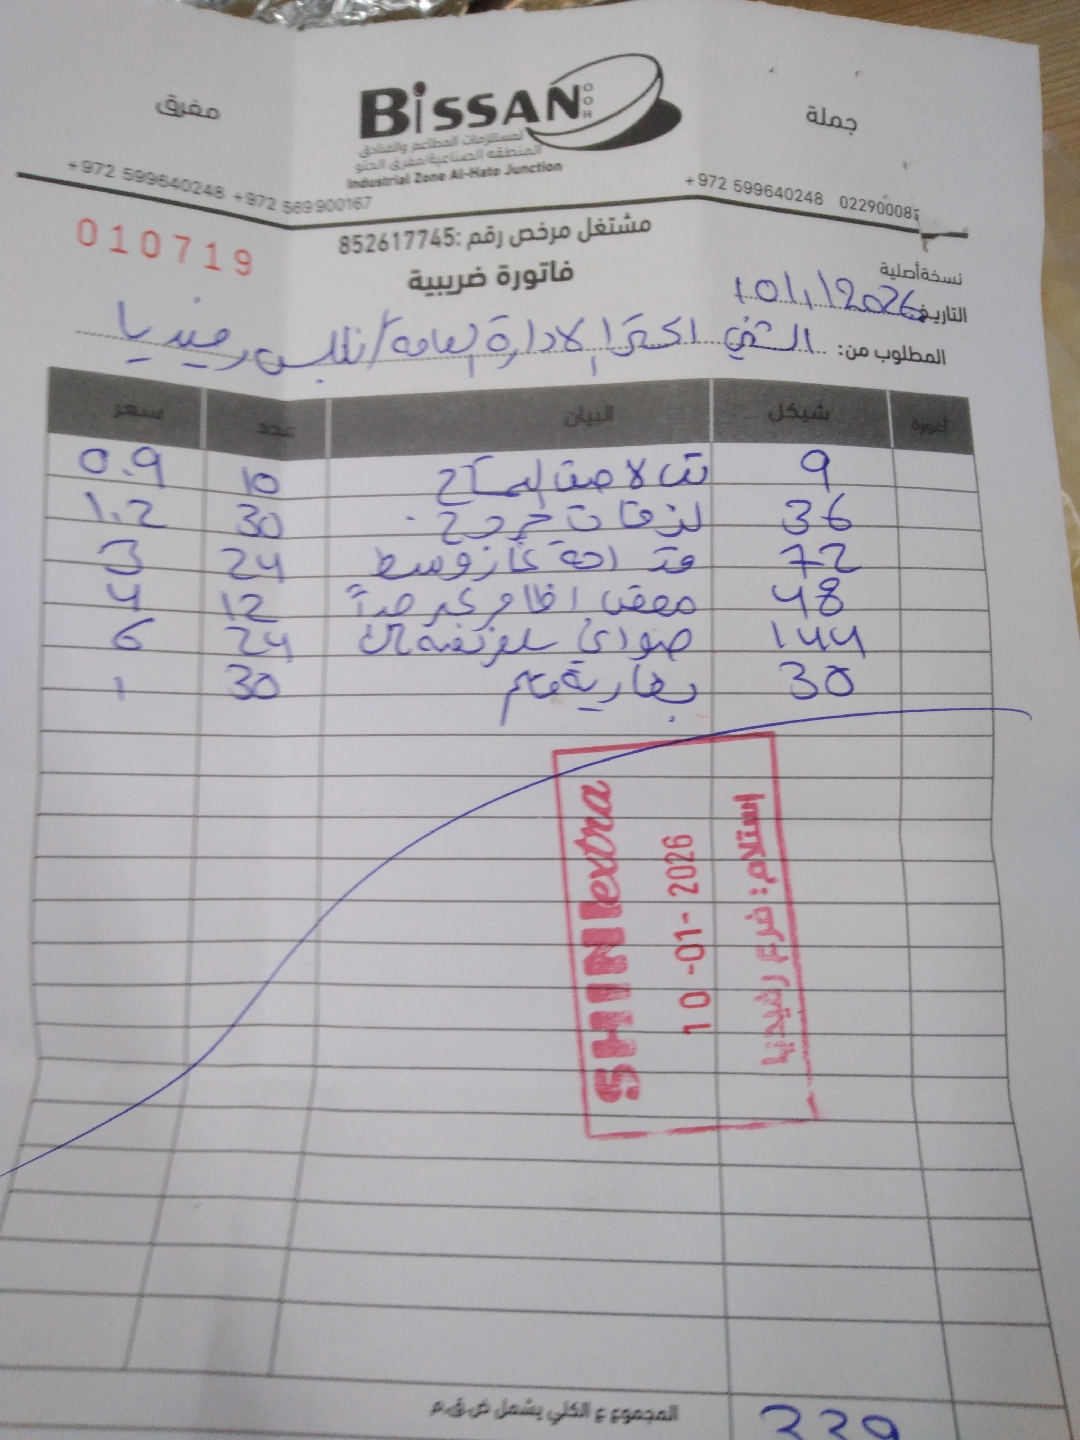 مفرق
BiSSAN
OOH
جملة
لمستلزمات المطاعم والفنادق
المنطقة الصناعية/مفرق الحتو
Industrial Zone Al-Hato Junction
+972 599640248 +972 569900167
+972 599640248 022900085
010719
مشتغل مرخص رقم :852617745
فاتورة ضريبية
نسخة أصلية
التاريخ 10/1/2026
المطلوب من: الشني اكسترا الادارة العامة/نابلس رفيديا
أغورة شيكل البيان عدد سعر
9 10 0.9
36 لزقات جروح 30 1.2
72 قداحة غاز وسط 24 3
48 12 4
144 صواني 24 6
30 بطارية قلم 30 1
SHINI extra
10 -01- 2026
إستلام:
المجموع الكلي يشمل ض.ق.م
339